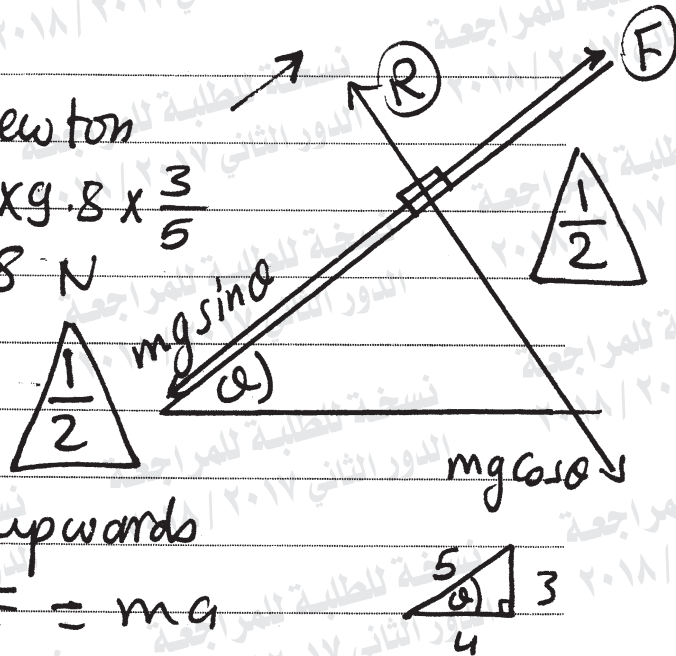 F
R
ewton
x9.8 x 3/5
8 N
1/2
mg sinθ
θ
1/2
mg cosθ
upwards
= ma
5
θ
3
4
نسخة للطلبة للمراجعة
الدور الثاني ٢٠١٧ / ٢٠١٨